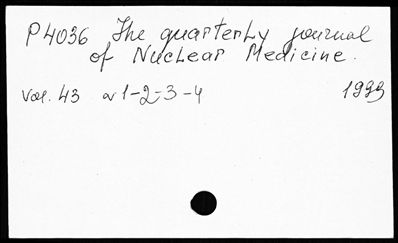 P4036 The quarterly journal
of Nuclear Medicine.
Vol. 43 N 1-2-3-4 1999